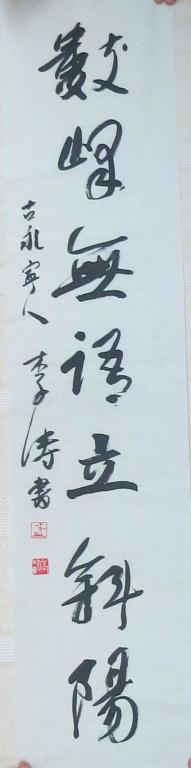 數峰無語立斜陽
古永寧人 李濤書